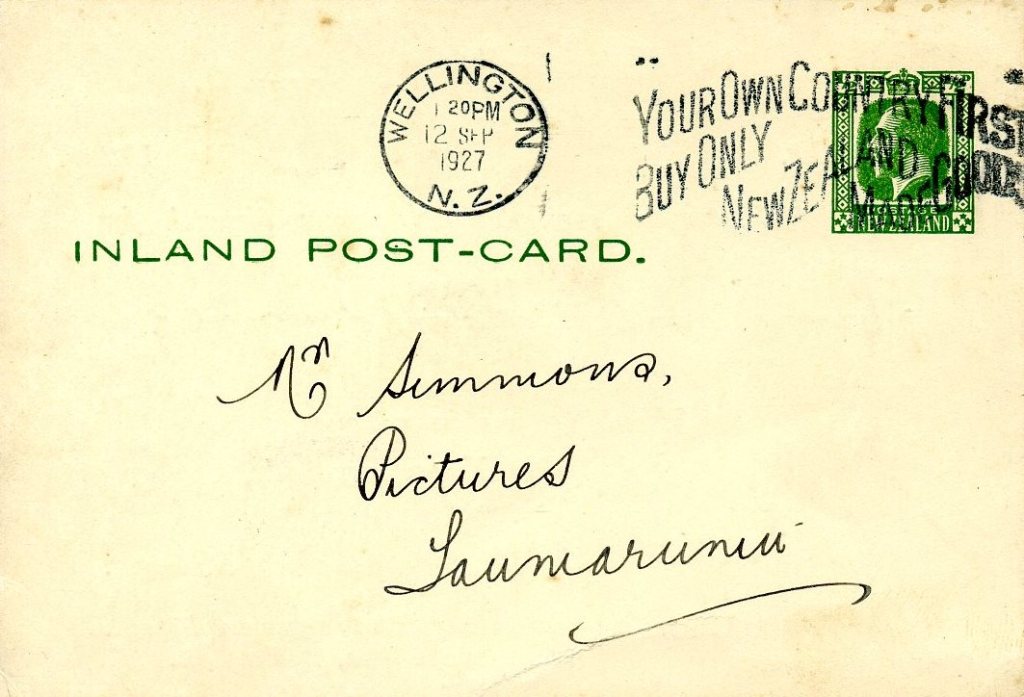 WELLINGTON
1 20PM
12 SEP
1927
N.Z.
YOUR OWN COUNTRY FIRST
BUY ONLY
NEW ZEALAND
MADE GOODS
POSTAGE
NEW ZEALAND
INLAND POST-CARD.
Mr Simmons,
Pictures
Taumarunui